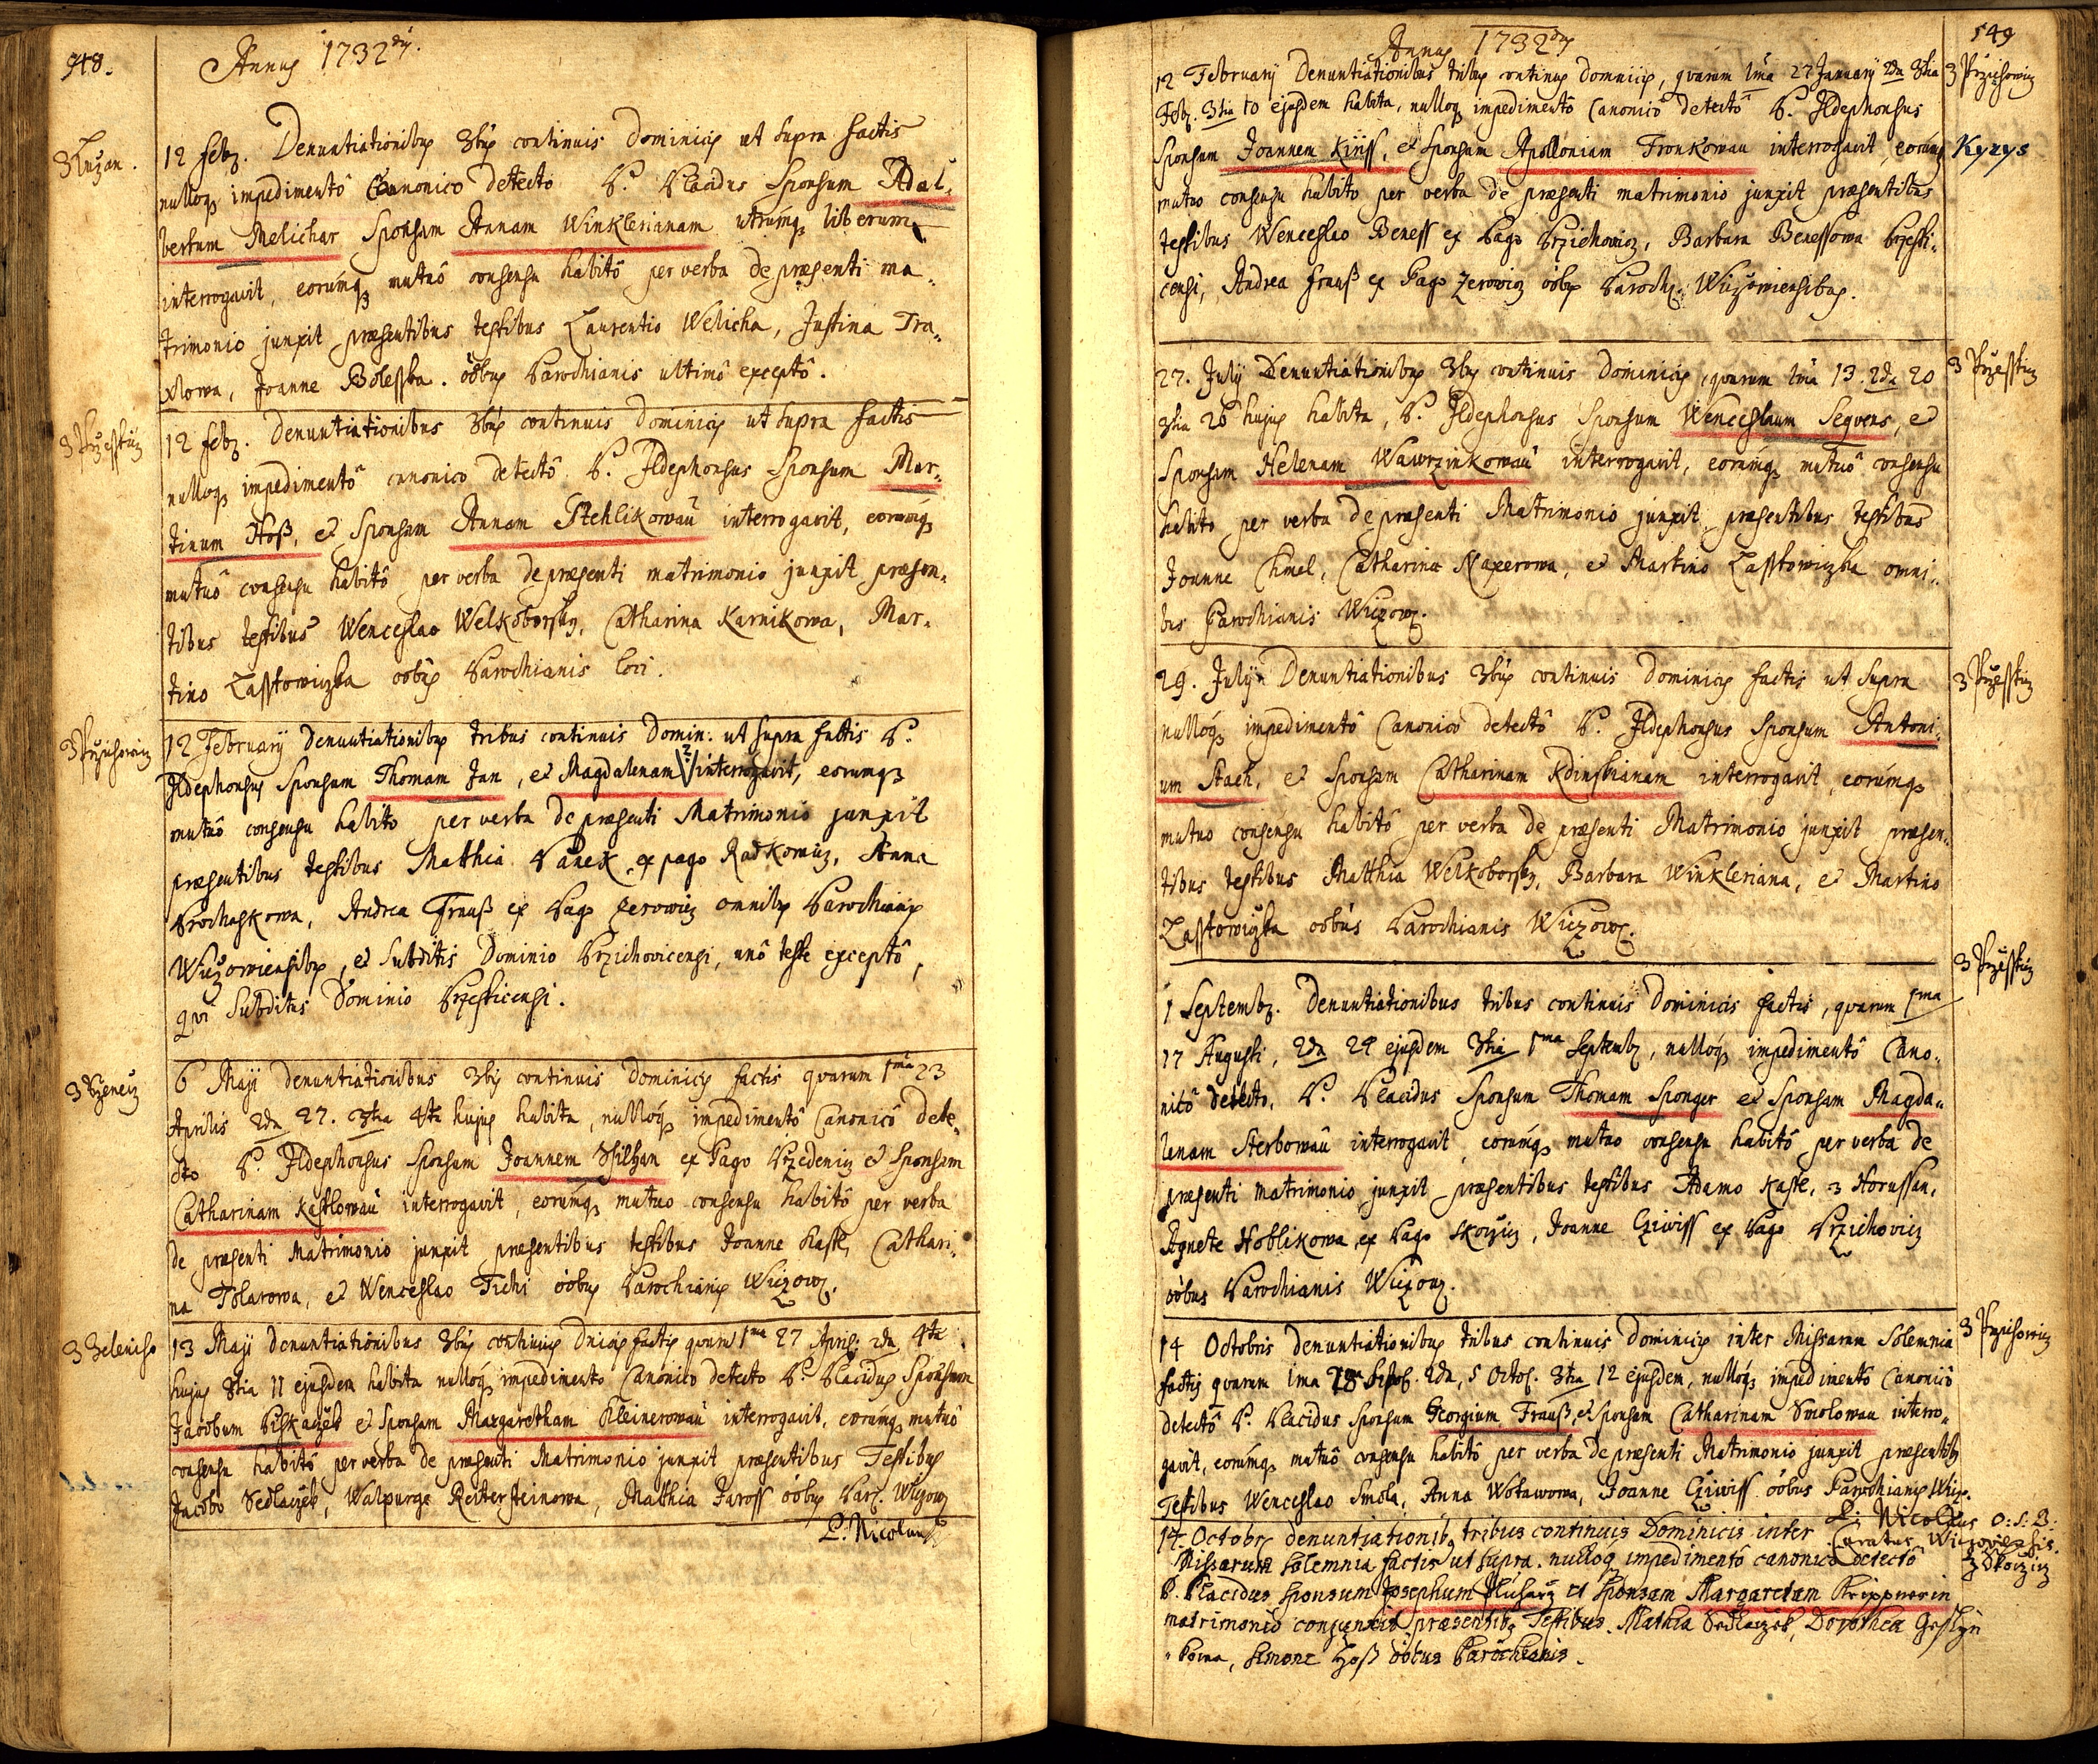 548.
Annus 1732dus.
3 Luzan.
12 Feb. Denuntiationibus 3bus continuis Dominicis ut supra factis
nulloq impedimentô Canonico detecto P. Placidus Sponsum Adal-
bertum Melichar Sponsam Annam Winklerianam utrumq liberum
interrogavit, eorumq mutuô consensu habitô per verba de præsenti ma-
trimonio junxit præsentibus testibus Laurentio Welicha, Justina Tra-
xlowa, Joanne Bolesska. oobus Parochianis ultimô exceptô.
3 Przesstiz
12 Feb. Denuntiationibus 3bus continuis Dominicis ut supra factis
nulloq impedimentô canonico detectô P. Ildephonsus Sponsum Mar-
tinum Hoß, et Sponsam Annam Stehlikowau interrogavit, eorumq
mutuô consensu habitô per verba de præsenti matrimonio junxit præsen-
tibus testibus Wenceslao Welkoborsky, Catharina Karnikowa, Mar-
tino Lasstowiczka oobus Parochianis loci.
3 Przichowicz
12 February Denuntiationibus tribus continuis Domin: ut supra factis P.
Ildephonsus Sponsum Thomam Jan, et Magdalenam ? interrogavit, eorumq
mutuô consensu habito per verba de præsenti Matrimonio junxit
præsentibus testibus Matthia Vanek ex pago Radkowicz, Anna
Prochaskowa, Andrea Frauß ex Pago Zerowicz omnibus Parochianis
Wiczowiensibus, et Subditis Dominio Przichovicensi, unô teste exceptô,
qui Subditus Dominio Przesticensi.
6 Maji denuntiationibus 3bus continuis dominicis factis quarum 1ma 23
Aprilis 2da 27. 3tia 4ta hujus habita, nulloq impedimentô Canonicô dete-
cto P. Ildephonsus Sponsum Joannem Schilhan ex Pago Przedenicz et Sponsam
Catharinam Kastlowau interrogavit, eorumq mutuo consensu habitô per verba
de præsenti Matrimonio junxit præsentibus testibus Joanne Kastl, Cathari-
na Tolarowa, et Wenceslao Tichi oobus Parochianis Wiczow.
3 Zelenisо
13 Maji denuntiationibus 3bus continuis Dnicis factis quarum 1ma 27 April: 2da 4ta
hujus 3tia 11 ejusdem habita nulloq impedimento Canonico detecto P. Placidus Sponsum
Jacobum Piskaczek et Sponsam Margaretham Kleinerowau interrogavit, eorumq mutuo
consensu habitô per verba de præsenti Matrimonio junxit præsentibus Testibus
Jacobo Sedlaczek, Walpurga Reitersteinowa, Matthia Jaross oobus Par. Wiczow
P. Nicolaus
549
Annus 1732dus
12 February Denuntiationibus tribus continuis dominicis, quarum 1ma 27 January 2da 3tia
Feb. 3tia 10 ejusdem habita, nulloq impedimentô Canonicô detectô P. Ildephonsus
Sponsum Joannem Kiriss, et Sponsam Apolloniam Fronkowau interrogavit, eorumq
mutuo consensu habito per verba de præsenti matrimonio junxit præsentibus
testibus Wenceslao Beness ex Pago Przichowicz, Barbara Benessowa Przesti-
censi, Andrea Frauß ex Pago Zerowicz oobus Paroch. Wiczowiensibus.
3 Przichowicz
Kyzys
27. July Denuntiationibus 3bus continuis Dominicis, quarum 1ma 13. 2da 20
3tia 26 hujus habita, P. Ildephonsus Sponsum Wenceslaum Seqvens, et
Sponsam Helenam Wawrzinkowau interrogavit, eorumq mutuô consensu
habito per verba de præsenti Matrimonio junxit præsentibus testibus
Joanne Chmel, Catharina Naxerowa, et Martino Lasstowiczka omni-
bus Parochianis Wiczow.
3 Przesstiz
29. July Denuntiationibus 3bus continuis Dominicis factis ut supra
nulloq impedimentô Canonicô detectô P. Ildephonsus Sponsum Antoni-
um Stach, et Sponsam Catharinam Kdinskianam interrogavit, eorumq
mutuo consensu habitô per verba de præsenti Matrimonio junxit præsen-
tibus testibus Matthia Welkoborsky, Barbara Winkleriana, et Martino
Lasstowiczka oobus Parochianis Wiczow.
3 Przesstiz
1 Septemb. Denuntiationibus tribus continuis Dominicis factis, quarum 1ma
17 Augusti, 2da 24 ejusdem 3tia 1ma Septemb, nulloq impedimentô Cano-
nicô detecto, P. Placidus Sponsum Thomam Sponger et Sponsam Magda-
lenam Sterbowau interrogavit, eorumq mutuo consensu habitô per verba de
præsenti matrimonio junxit præsentibus testibus Adamo Kastl, 3 Horussan,
Agnete Hoblikowa ex Pago Skoczicz, Joanne Cziwiss ex Pago Przichovicz
oobus Parochianis Wiczow.
3 Przesstiz
14 Octobris denuntiationibus tribus continuis Dominicis inter Missarum Solemnia
factis quarum 1ma 28 Sept. 2da, 5 Octo. 3tia 12 ejusdem, nulloq impedimentô Canonicô
detectô P. Placidus Sponsum Georgium Frauß, et Sponsam Catharinam Smolowau interro-
gavit, eorumq mutuô consensu habitô per verba de præsenti Matrimonio junxit præsentibus
Testibus Wenceslao Smola, Anna Wotawowa, Joanne Cziwiss oobus Parochianis Wicz.
3 Przichowicz
P: Nicolaus O:S:B:
Curatus Wiczoviensis.
14. Octobr. denuntiationibq tribus continuis Dominicis inter
Missarum solemnia factis ut supra. nulloq impedimentô canonicô detectô
P. Placidus sponsum Josephum Pluharz et sponsam Margaretam Krippnerin
matrimoniô conjunxit præsentibq Testibus. Mathia Sedlaczek, Dorothea
kowa, Simone Hoß oobus Parochianis.
3 Skoczicz